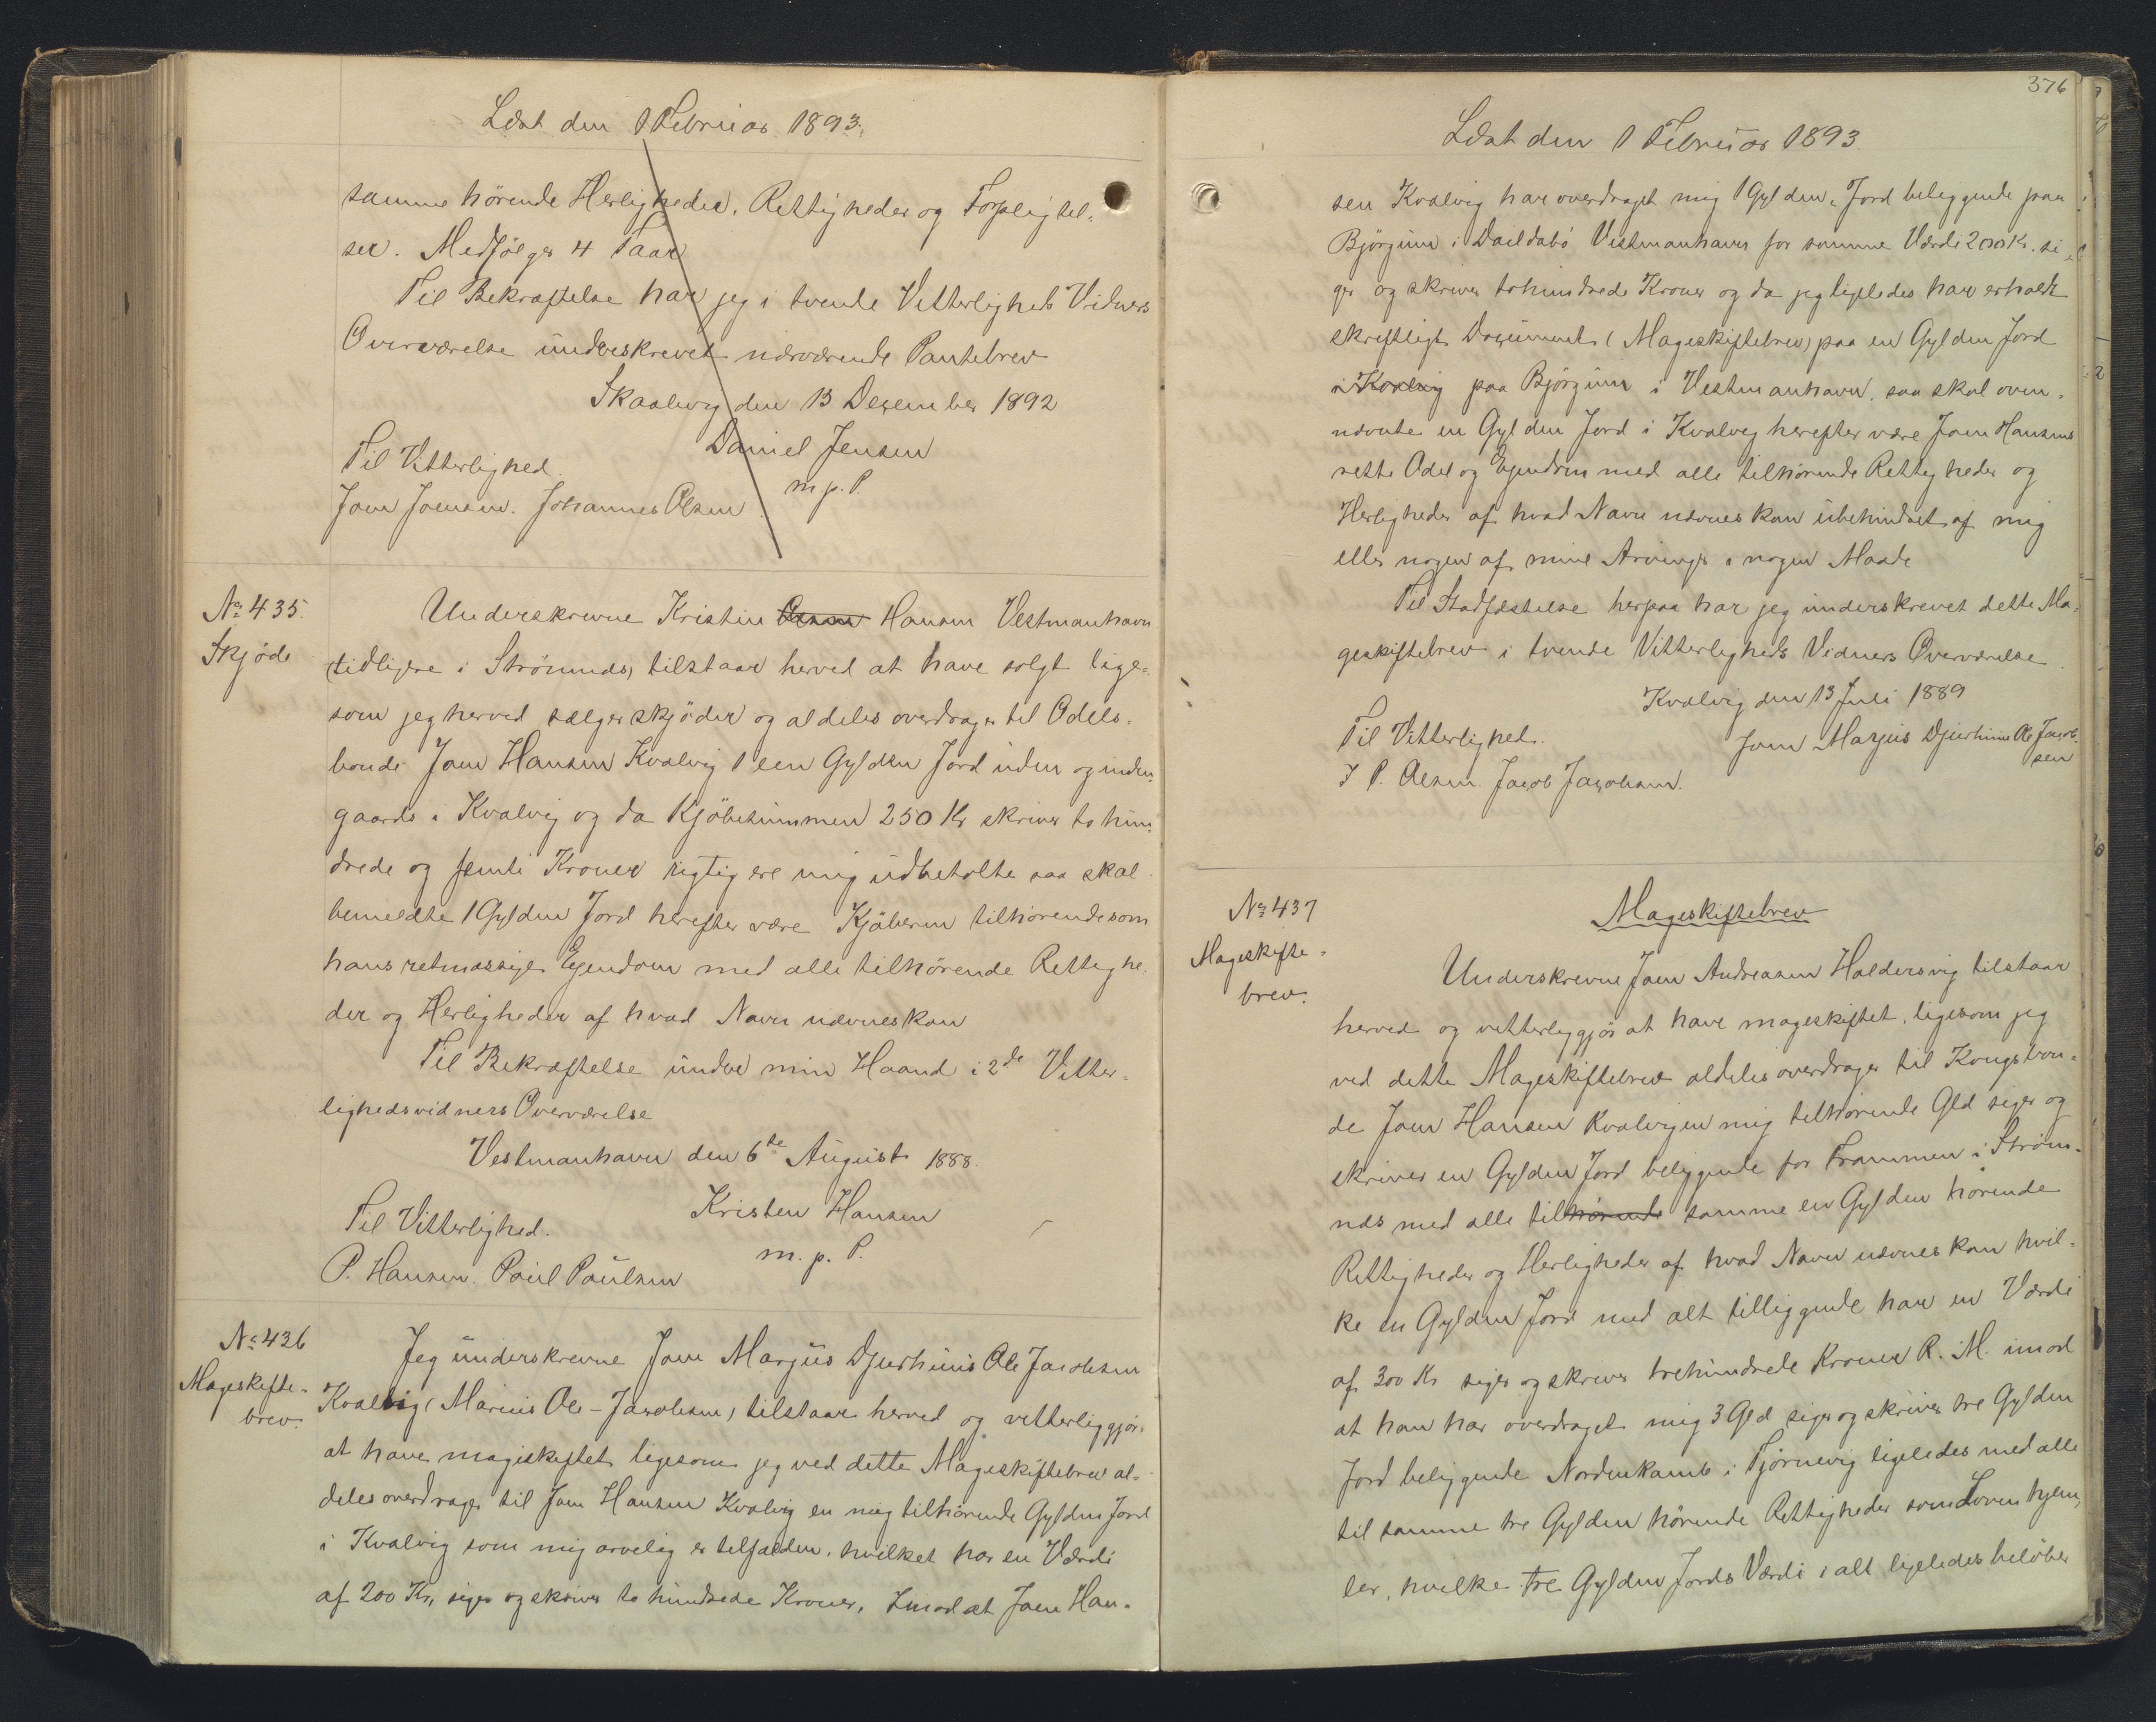 Læst den 1 Februar 1893.
samme hørende Herligheder, Rettigheder og Forpligtel-
ser. Medfølger 4 Faar
Til Bekræftelse har jeg i tvende Vitterligheds Vidners
Overværelse underskrevet nærværende Pantebrev
Skaalevig den 13 Dezember 1892
Daniel Jensen
Til Vitterlighed.
m.p.P.
Joen Joensen. Johannes Olsen
No 435.
Skjøde
Underskrevne Kristen Hansen Vestmanhavn
(tidligere i Strømnæs) tilstaar herved at have solgt lige-
som jeg herved sælger skjøder og aldeles overdrager til Odels-
bonde Joen Hansen Kvalvig 1 een Gylden Jord uden og inden-
gaards i Kvalvig og da Kjøbesummen 250 Kr skriver to hun-
drede og femti Kroner rigtig ere mig udbetalte saa skal
bemeldte 1 Gylden Jord herefter være Kjøberen tilhørende som
hans retmæssige Ejendom med alle tilhørende Rettighe-
der og Herligheder af hvad Navn nævnes kan
Til Bekræftelse under min Haand i 2de Vitter-
lighedsvidners Overværelse
Vestmanhavn den 6te August 1888.
Kristen Hansen
Til Vitterlighed.
m.p.P.
P. Hansen. Poul Poulsen
No 436
Mageskifte-
brev.
Jeg underskrevne Joen Marjus Djurhuus Ole Jacobsen
Kvalvig (Marius Ole-Jacobsen) tilstaar herved og vitterliggjør
at have mageskiftet ligesom jeg ved dette Mageskiftebrev al-
deles overdrager til Joen Hansen Kvalvig en mig tilhørende Gylden Jord
i Kvalvig som mig arvelig er tilfalden, hvilket har en Værdi
af 200 Kr, siger og skriver to hundrede Kroner, Imod at Joen Han-
376
Læst den 1 Februar 1893.
sen Kvalvig har overdraget mig 1 Gylden Jord beliggende paa
Bjørgum i Vestmanhavn for samme Værdi 200 Kr. si-
ger og skriver tohundrede Kroner og da jeg ligeledes har erholdt
skriftligt Document (Mageskiftebrev) paa en Gylden Jord
i Kvalvig paa Bjørgum i Vestmanhavn, saa skal oven-
nævnte en Gylden Jord i Kvalvig herefter være Joen Hansens
rette Odel og Ejendom med alle tilhørende Rettigheder og
Herligheder af hvad Navn nævnes kan ubehindret af mig
eller nogen af mine Arvinger i nogen Maade
Til Stadfæstelse herpaa har jeg underskrevet dette Ma-
geskiftebrev i tvende Vitterligheds Vidners Overværelse.
Kvalvig den 13 Juli 1889
Til Vitterlighed.
Joen Marjus Djurhuus Ole Jacob-
sen
J P. Olsen. Jacob Jacobsen.
No 437
Mageskifte-
brev.
Mageskiftebrev
Underskrevne Joen Andreasen Haldersvig tilstaar
herved og vitterliggjør at have mageskiftet, ligesom jeg
ved dette Mageskiftebrev aldeles overdrager til Kongsbon-
de Joen Hansen Kvalvig en mig tilhørende Gld siger og
skriver en Gylden Jord beliggende for Frammen i Strøm-
næs med alle tilhørende samme en Gylden hørende
Rettigheder og Herligheder af hvad Navn nævnes kan hvil-
ke en Gylden Jord med alt tilliggende har en Værdi
af 300 Kr siger og skriver trehundrede Kroner R. M. imod
at han har overdraget mig 3 Gld siger og skriver tre Gylden
Jord beliggende Nordenkamb i Tjørnevig ligeledes med alle
til samme tre Gylden hørende Rettigheder som Loven hjem-
ler, hvilke tre Gylden Jords Værdi i alt ligeledes beløber